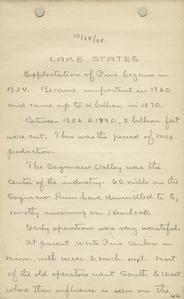 10/28/08
LAKE STATES
Exploitation of Pine began in
1834. Became important in 1860
and came up to 4 billion in 1870.
Between 1886 & 1890, 8 billion feet
were cut. This was the period of max.
production.
The Saginaw Valley was the
center of the industry. 60 mills on the
Saginaw River have dwindled to 5,
mostly running on Hemlock.
Early operations were very wasteful.
At present White Pine centers in
Minn. with Wisc. & Mich. next. Most
of the old operators went South & West
where their influence is seen on the